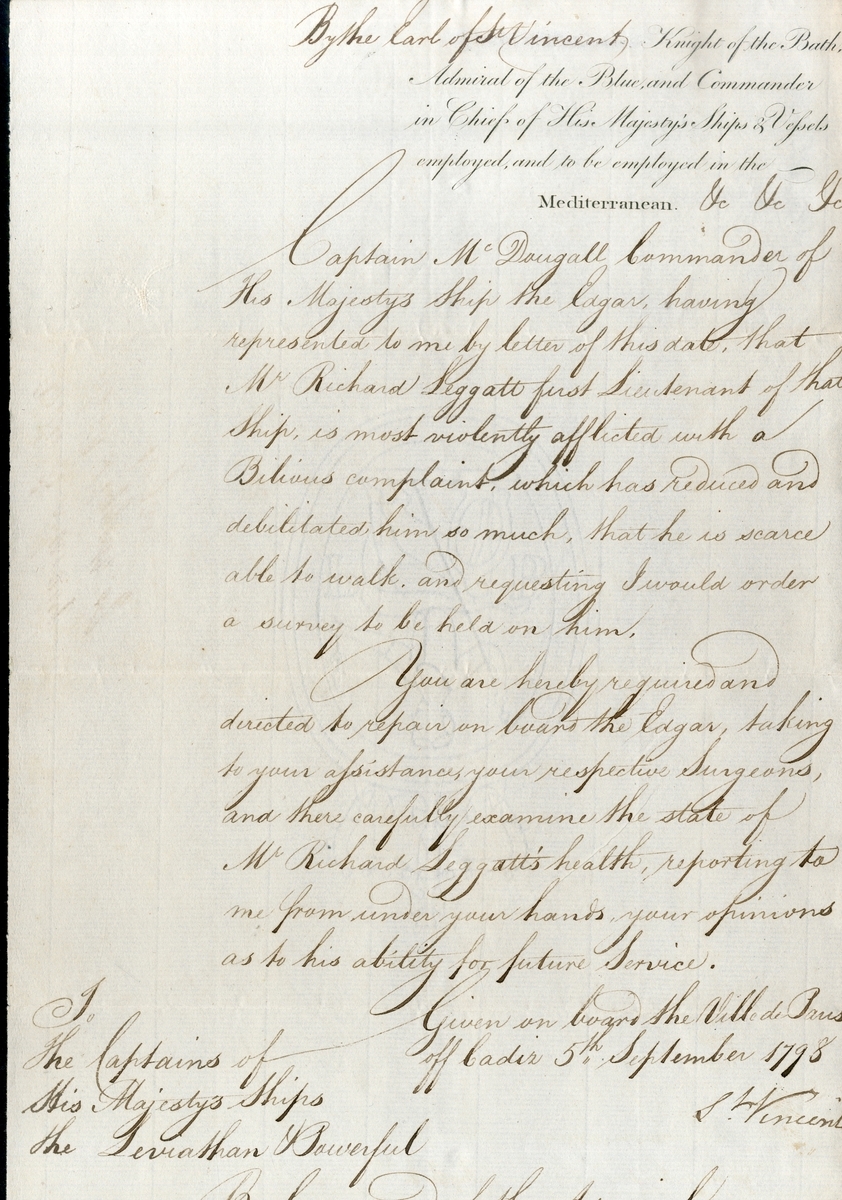 By the Earl of St Vincent, Knight of the Bath,
Admiral of the Blue, and Commander
in Chief of His Majesty's Ships & Vessels
employed, and to be employed in the —
Mediterranean. &c &c &c
Captain Mc Dougall Commander of
His Majestys Ship the Edgar, having
represented to me by letter of this date, that
Mr Richard Leggatt first Lieutenant of that
Ship, is most violently afflicted with a
Bilious complaint, which has reduced and
debilitated him so much, that he is scarce
able to walk, and requesting I would order
a survey to be held on him.
You are hereby required and
directed to repair on board the Edgar, taking
to your assistance, your respective Surgeons,
and there carefully examine the state of
Mr Richard Leggatt's health, reporting to
me from under your hands, your opinions
as to his ability for future Service.
Given on board the Ville de Paris
off Cadiz 5th September 1798
St Vincent
To
The Captains of
His Majesty's Ships
the Leviathan & Powerful